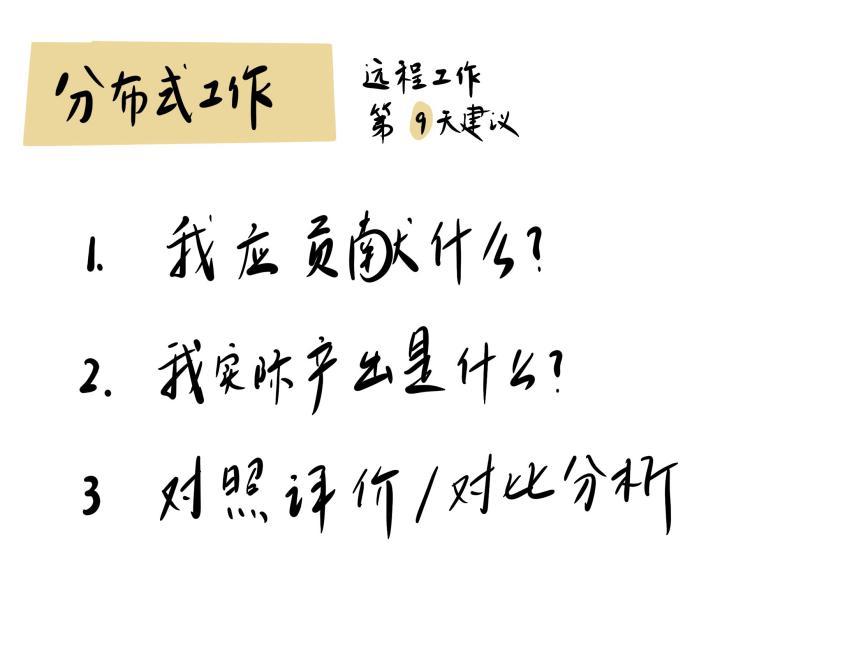 分布式工作
远程工作
第9天建议
1. 我应贡献什么?
2. 我实际产出是什么?
3 对照评价/对比分析